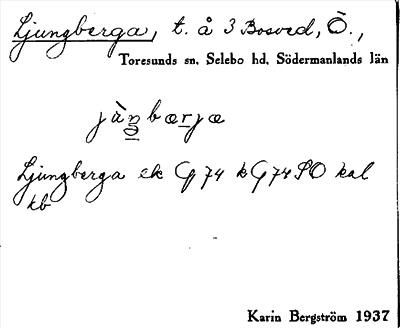 Ljungberga, t. å 3 Bosved, Ö.,
Toresunds sn, Selebo hd, Södermanlands län
Ljungberga ek G 74 k G 74 SO kal
kb
Karin Bergström 1937